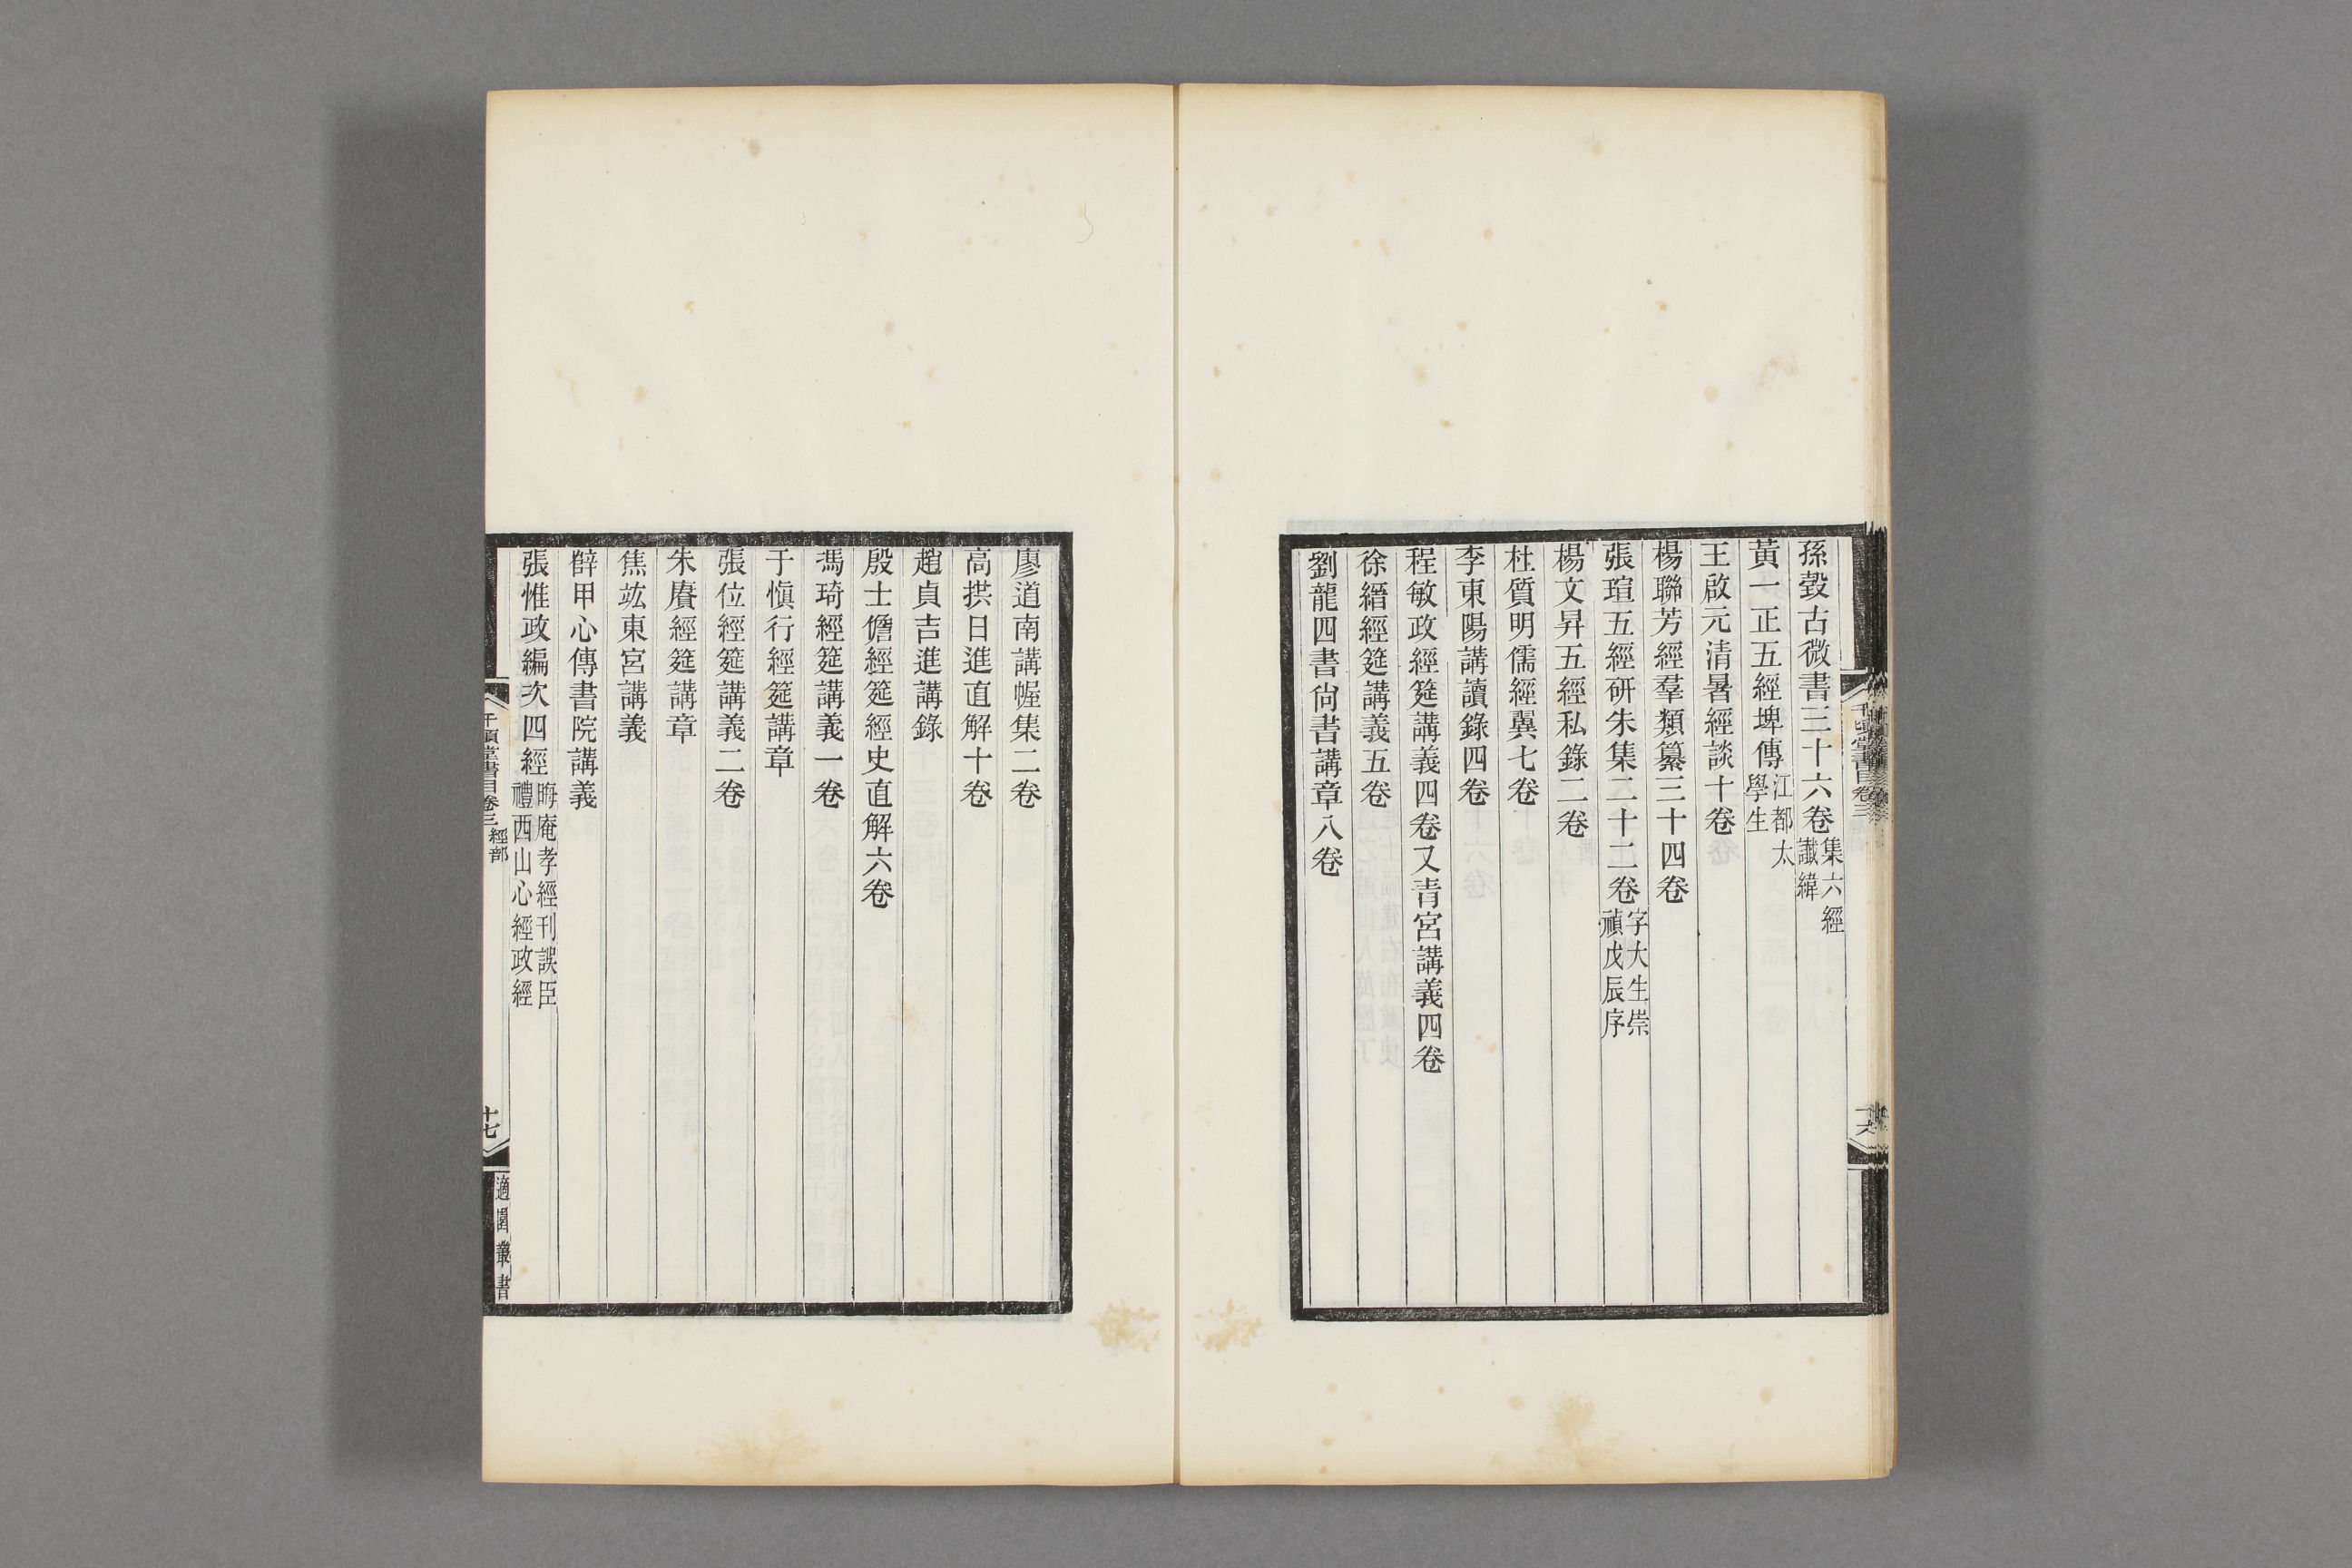 孫瑴古微書三十六卷集六經讖緯
黃一正五經埤傳江都太學生
王啟元清暑經談十卷
楊聯芳經羣類纂三十四卷
張瑄五經研朱集二十二卷字大生崇禎戊辰序
楊文昇五經私錄二卷
杜質明儒經翼七卷
李東陽講讀錄四卷
程敏政經筵講義四卷又青宮講義四卷
徐縉經筵講義五卷
劉龍四書尙書講章八卷
千頃堂書目卷三
十六
廖道南講幄集二卷
高拱日進直解十卷
趙貞吉進講錄
殷士儋經筵經史直解六卷
馮琦經筵講義一卷
于愼行經筵講章
張位經筵講義二卷
朱賡經筵講章
焦竑東宮講義
薛甲心傳書院講義
張惟政編次四經晦庵孝經刊誤臣禮西山心經政經
千頃堂書目卷三 經部
十七
適園叢書